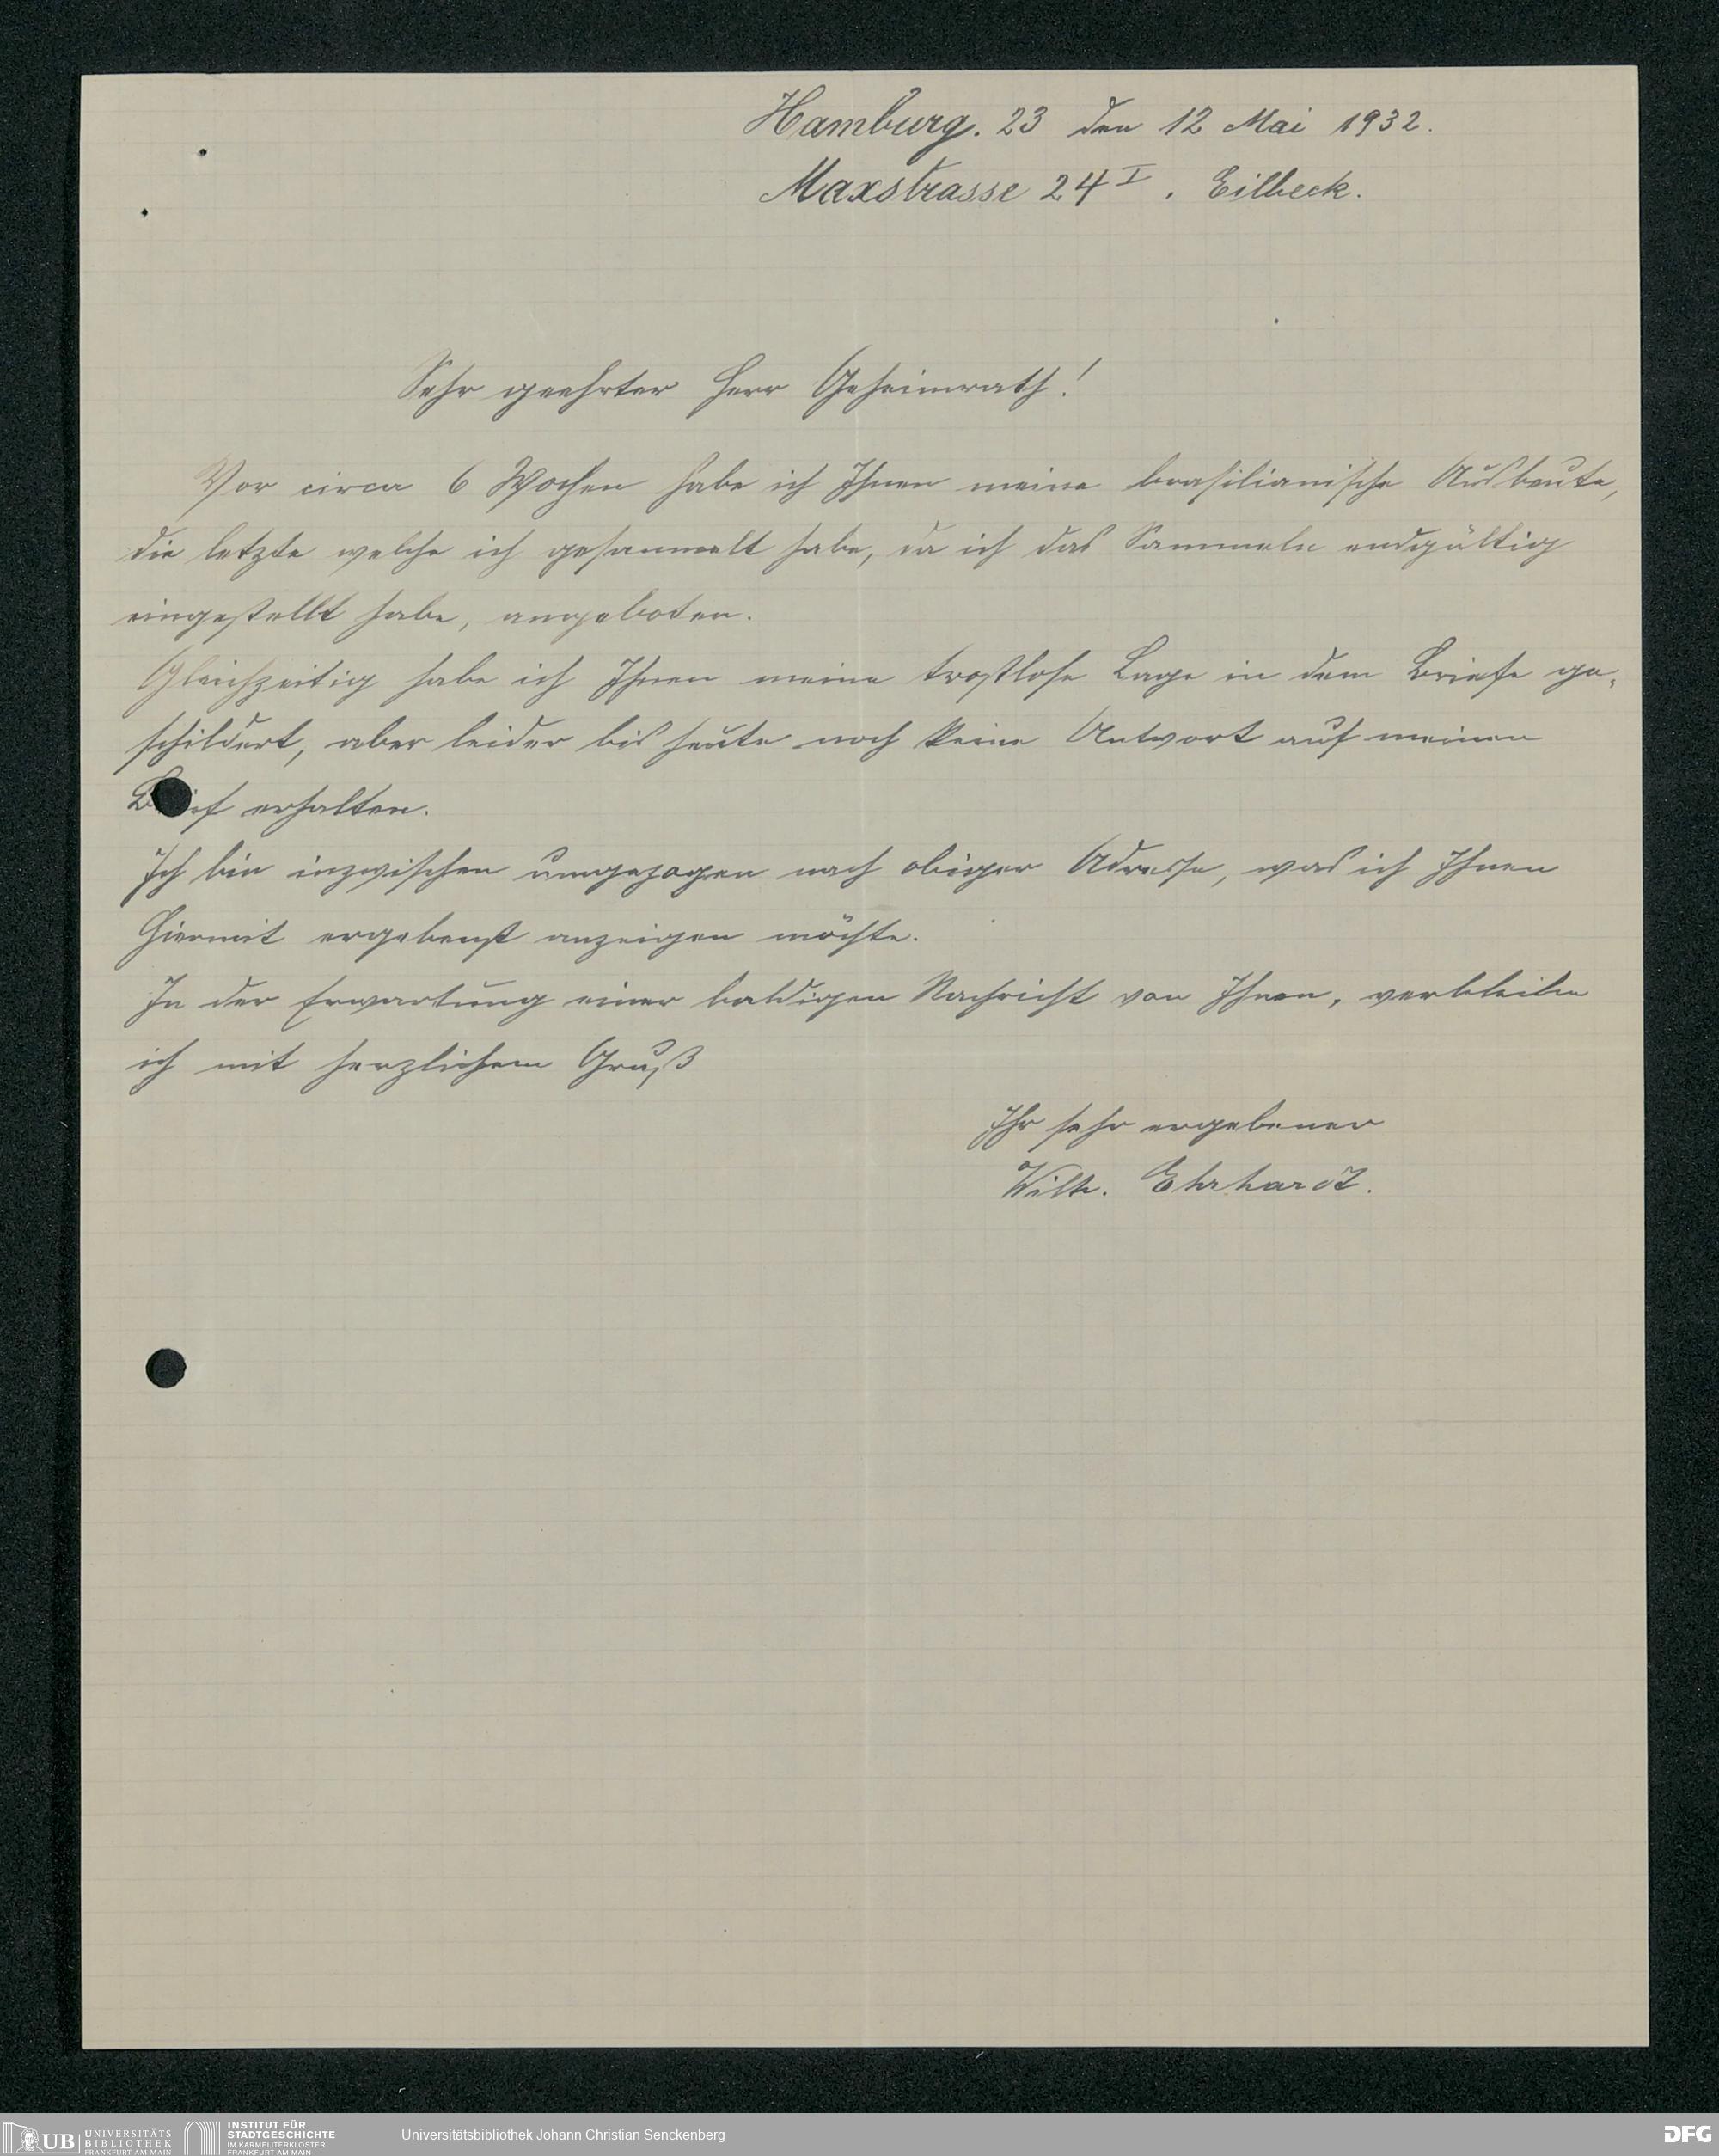 Hamburg. 23 den 12 Mai 1932.
Maxstrasse 24 I. Eilbeck.
Sehr geehrter Herr Geheimrath!
Vor circa 6 Wochen habe ich Ihnen meine brasilianische Ausbeute,
die letzte welche ich gesammelt habe, da ich das Sammeln endgültig
eingestellt habe, angeboten.
Gleichzeitig habe ich Ihnen meine trostlose Lage in dem Briefe ge-
schildert, aber leider bis heute noch keine Antwort auf meinen
Brief erhalten.
Ich bin inzwischen umgezogen nach obiger Adresse, was ich Ihnen
hiermit ergebenst anzeigen möchte.
In der Erwartung einer baldigen Nachricht von Ihnen, verbleibe
ich mit herzlichem Gruß
Ihr sehr ergebener
Wilh. Ehrhardt.
UB UNIVERSITÄTS BIBLIOTHEK FRANKFURT AM MAIN
INSTITUT FÜR STADTGESCHICHTE IM KARMELITERKLOSTER FRANKFURT AM MAIN
Universitätsbibliothek Johann Christian Senckenberg
DFG